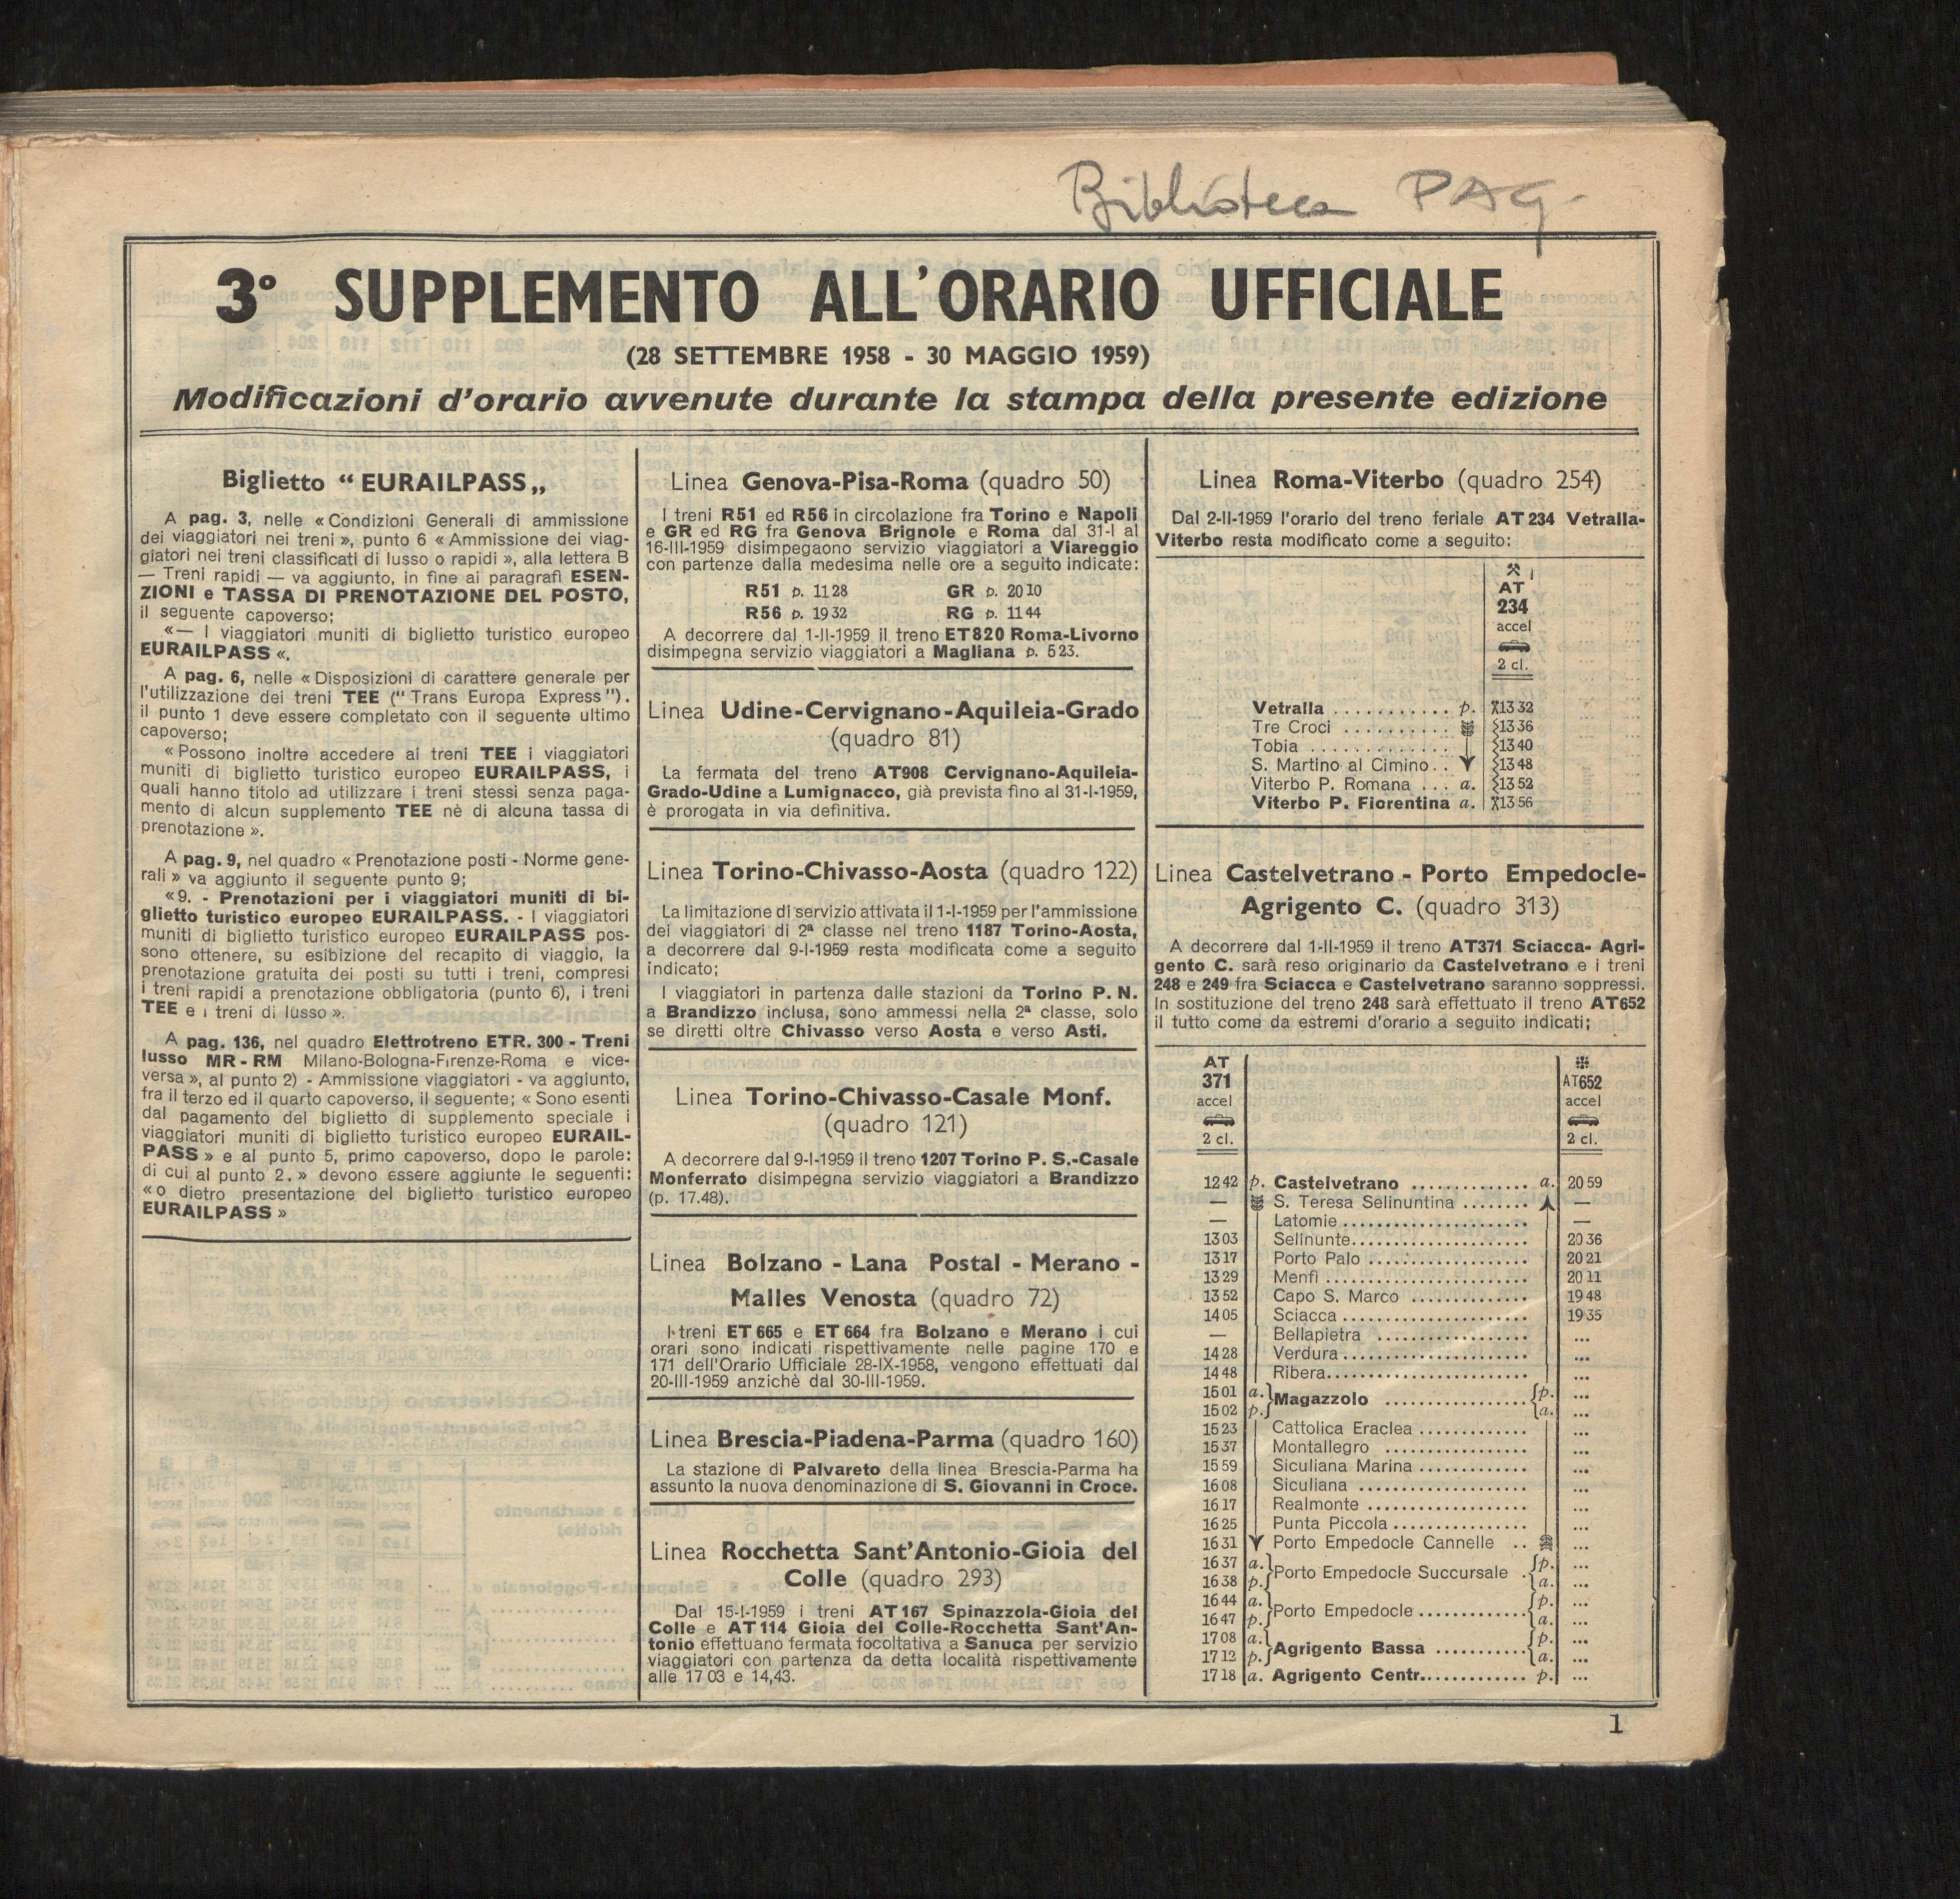 Biblioteca PAG.
3° SUPPLEMENTO ALL'ORARIO UFFICIALE
(28 SETTEMBRE 1958 - 30 MAGGIO 1959)
Modificazioni d'orario avvenute durante la stampa della presente edizione
Biglietto “ EURAILPASS „
A pag. 3, nelle « Condizioni Generali di ammissione
dei viaggiatori nei treni », punto 6 « Ammissione dei viag-
giatori nei treni classificati di lusso o rapidi », alla lettera B
— Treni rapidi — va aggiunto, in fine ai paragrafi ESEN-
ZIONI e TASSA DI PRENOTAZIONE DEL POSTO,
il seguente capoverso;
«— I viaggiatori muniti di biglietto turistico europeo
EURAILPASS «.
A pag. 6, nelle « Disposizioni di carattere generale per
l'utilizzazione dei treni TEE (“ Trans Europa Express ”).
il punto 1 deve essere completato con il seguente ultimo
capoverso;
« Possono inoltre accedere ai treni TEE i viaggiatori
muniti di biglietto turistico europeo EURAILPASS, i
quali hanno titolo ad utilizzare i treni stessi senza paga-
mento di alcun supplemento TEE nè di alcuna tassa di
prenotazione ».
A pag. 9, nel quadro « Prenotazione posti - Norme gene-
rali » va aggiunto il seguente punto 9;
«9. - Prenotazioni per i viaggiatori muniti di bi-
glietto turistico europeo EURAILPASS. - I viaggiatori
muniti di biglietto turistico europeo EURAILPASS pos-
sono ottenere, su esibizione del recapito di viaggio, la
prenotazione gratuita dei posti su tutti i treni, compresi
i treni rapidi a prenotazione obbligatoria (punto 6), i treni
TEE e i treni di lusso ».
A pag. 136, nel quadro Elettrotreno ETR. 300 - Treni
lusso MR - RM Milano-Bologna-Firenze-Roma e vice-
versa », al punto 2) - Ammissione viaggiatori - va aggiunto,
fra il terzo ed il quarto capoverso, il seguente; « Sono esenti
dal pagamento del biglietto di supplemento speciale i
viaggiatori muniti di biglietto turistico europeo EURAIL-
PASS » e al punto 5, primo capoverso, dopo le parole:
di cui al punto 2. » devono essere aggiunte le seguenti:
« o dietro presentazione del biglietto turistico europeo
EURAILPASS »
Linea Genova-Pisa-Roma (quadro 50)
I treni R51 ed R56 in circolazione fra Torino e Napoli
e GR ed RG fra Genova Brignole e Roma dal 31-I al
16-III-1959 disimpegaono servizio viaggiatori a Viareggio
con partenze dalla medesima nelle ore a seguito indicate:
R51 p. 11 28 GR p. 20 10
R56 p. 19 32 RG p. 11 44
A decorrere dal 1-II-1959 il treno ET820 Roma-Livorno
disimpegna servizio viaggiatori a Magliana p. 5 23.
Linea Udine-Cervignano-Aquileia-Grado
(quadro 81)
La fermata del treno AT908 Cervignano-Aquileia-
Grado-Udine a Lumignacco, già prevista fino al 31-I-1959,
è prorogata in via definitiva.
Linea Torino-Chivasso-Aosta (quadro 122)
La limitazione di servizio attivata il 1-I-1959 per l'ammissione
dei viaggiatori di 2ª classe nel treno 1187 Torino-Aosta,
a decorrere dal 9-I-1959 resta modificata come a seguito
indicato;
I viaggiatori in partenza dalle stazioni da Torino P. N.
a Brandizzo inclusa, sono ammessi nella 2ª classe, solo
se diretti oltre Chivasso verso Aosta e verso Asti.
Linea Torino-Chivasso-Casale Monf.
(quadro 121)
A decorrere dal 9-I-1959 il treno 1207 Torino P. S.-Casale
Monferrato disimpegna servizio viaggiatori a Brandizzo
(p. 17.48).
Linea Bolzano - Lana Postal - Merano -
Malles Venosta (quadro 72)
I treni ET 665 e ET 664 fra Bolzano e Merano i cui
orari sono indicati rispettivamente nelle pagine 170 e
171 dell'Orario Ufficiale 28-IX-1958, vengono effettuati dal
20-III-1959 anzichè dal 30-III-1959.
Linea Brescia-Piadena-Parma (quadro 160)
La stazione di Palvareto della linea Brescia-Parma ha
assunto la nuova denominazione di S. Giovanni in Croce.
Linea Rocchetta Sant'Antonio-Gioia del
Colle (quadro 293)
Dal 15-I-1959 i treni AT 167 Spinazzola-Gioia del
Colle e AT 114 Gioia del Colle-Rocchetta Sant'An-
tonio effettuano fermata focoltativa a Sanuca per servizio
viaggiatori con partenza da detta località rispettivamente
alle 17 03 e 14,43.
Linea Roma-Viterbo (quadro 254)
Dal 2-II-1959 l'orario del treno feriale AT 234 Vetralla-
Viterbo resta modificato come a seguito:
AT
234
accel
2 cl.
Vetralla ........... p. 13 32
Tre Croci .......... 13 36
Tobia ............. 13 40
S. Martino al Cimino .. 13 48
Viterbo P. Romana ... a. 13 52
Viterbo P. Fiorentina a. 13 56
Linea Castelvetrano - Porto Empedocle-
Agrigento C. (quadro 313)
A decorrere dal 1-II-1959 il treno AT371 Sciacca- Agri-
gento C. sarà reso originario da Castelvetrano e i treni
248 e 249 fra Sciacca e Castelvetrano saranno soppressi.
In sostituzione del treno 248 sarà effettuato il treno AT652
il tutto come da estremi d'orario a seguito indicati;
AT
371 AT652
accel accel
2 cl. 2 cl.
12 42 p. Castelvetrano ............. a. 20 59
— S. Teresa Selinuntina ........ —
— Latomie ...................... —
13 03 Selinunte..................... 20 36
13 17 Porto Palo ................... 20 21
13 29 Menfi ........................ 20 11
13 52 Capo S. Marco .............. 19 48
14 05 Sciacca ....................... 19 35
— Bellapietra .................. ...
14 28 Verdura ...................... ...
14 48 Ribera........................ ...
15 01 a. Magazzolo ................. p. ...
15 02 p. a. ...
15 23 Cattolica Eraclea ............. ...
15 37 Montallegro ................. ...
15 59 Siculiana Marina ............. ...
16 08 Siculiana .................... ...
16 17 Realmonte ................... ...
16 25 Punta Piccola ................ ...
16 31 Porto Empedocle Cannelle .. ...
16 37 a. Porto Empedocle Succursale . p. ...
16 38 p. a. ...
16 44 a. Porto Empedocle ............. p. ...
16 47 p. a. ...
17 08 a. Agrigento Bassa ........... p. ...
17 12 p. a. ...
17 18 a. Agrigento Centr............. p. ...
1